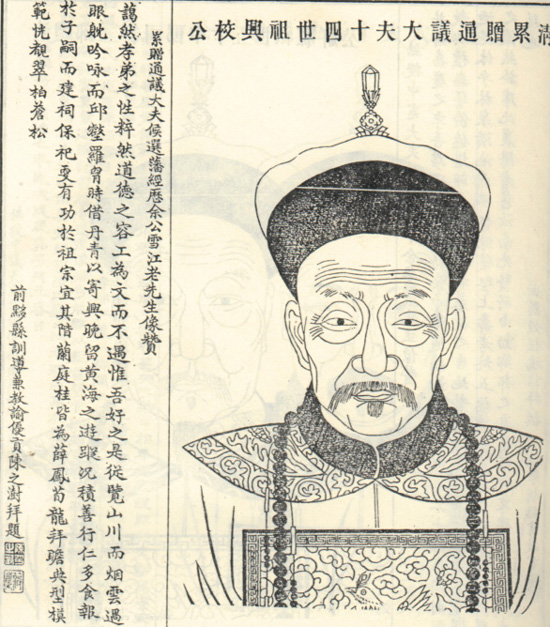 清累贈通議大夫十四世祖興校公
累贈通議大夫候選藩經歷余公雪江老先生像贊
藹然孝弟之性粹然道德之容工為文而不遇惟吾好之是從覽山川而烟雲過
眼耽吟咏而邱壑羅胷時借丹青以寄興晚留黃海之遊蹤況積善行仁多食報
於子嗣而建祠保祀更有功於祖宗宜其階蘭庭桂皆為薛鳳荀龍拜瞻典型模
範恍覩翠柏蒼松
前黟縣訓導兼教諭優貢陳之澍拜題